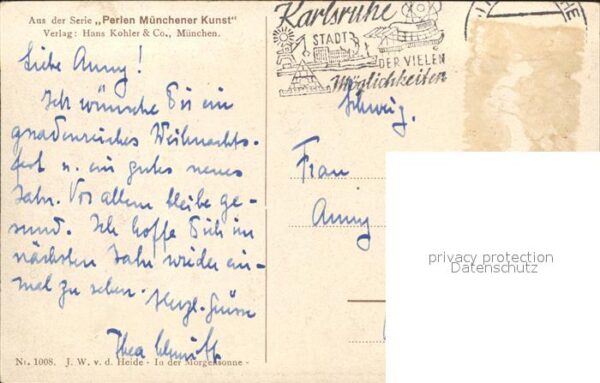 Aus der Serie „Perlen Münchener Kunst“
Verlag: Hans Köhler & Co., München.
Liebe Anny!
Ich wünsche Dir ein
gnadenreiches Weihnachts-
fest u. ein gutes neues
Jahr. Vor allem bleibe ge-
sund. Ich hoffe Dich im
nächsten Jahr wieder ein-
mal zu sehen. Herzl. Grüsse
Thea
Nr. 1008. J. W. v. d. Heide - In der Morgensonne -
Karlsruhe
STADT
DER VIELEN
Möglichkeiten
Schweiz.
Frau
Anny
privacy protection
Datenschutz